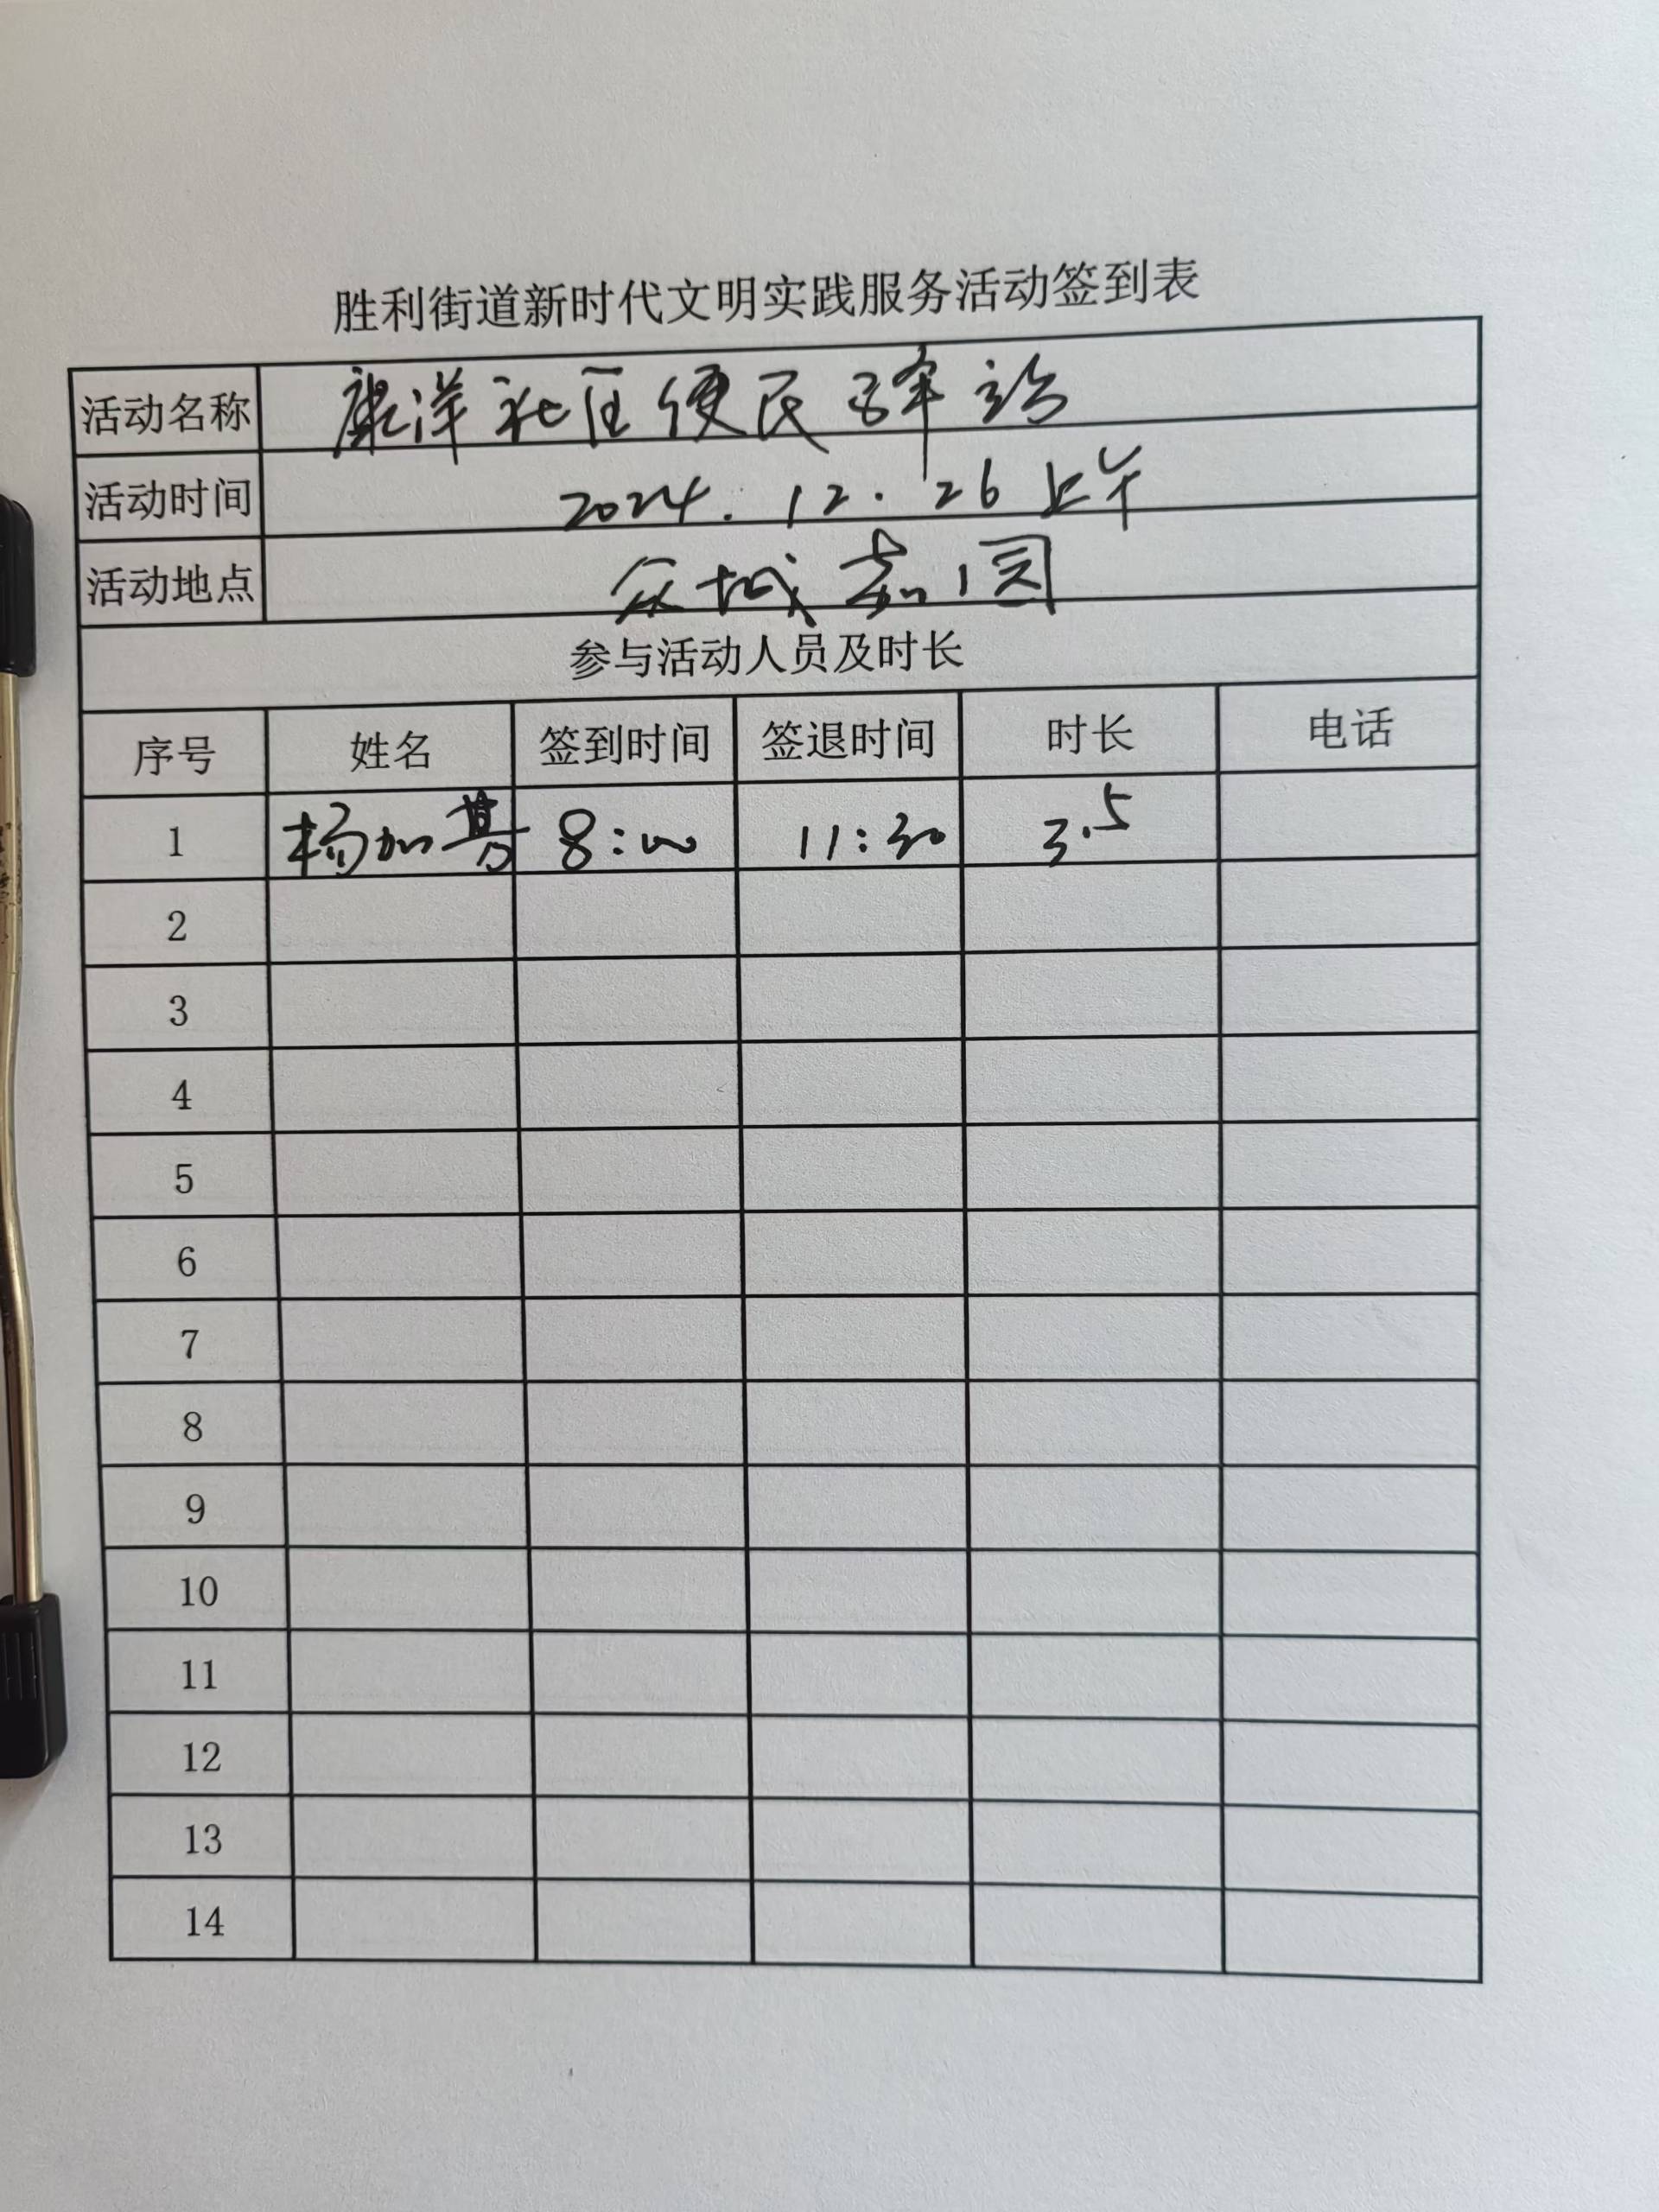 胜利街道新时代文明实践服务活动签到表
活动名称 康洋社区便民 站
活动时间 2024.12.26上午
活动地点 众城嘉园
参与活动人员及时长
序号 姓名 签到时间 签退时间 时长 电话
1 杨加 8:00 11:30 3.5
2
3
4
5
6
7
8
9
10
11
12
13
14